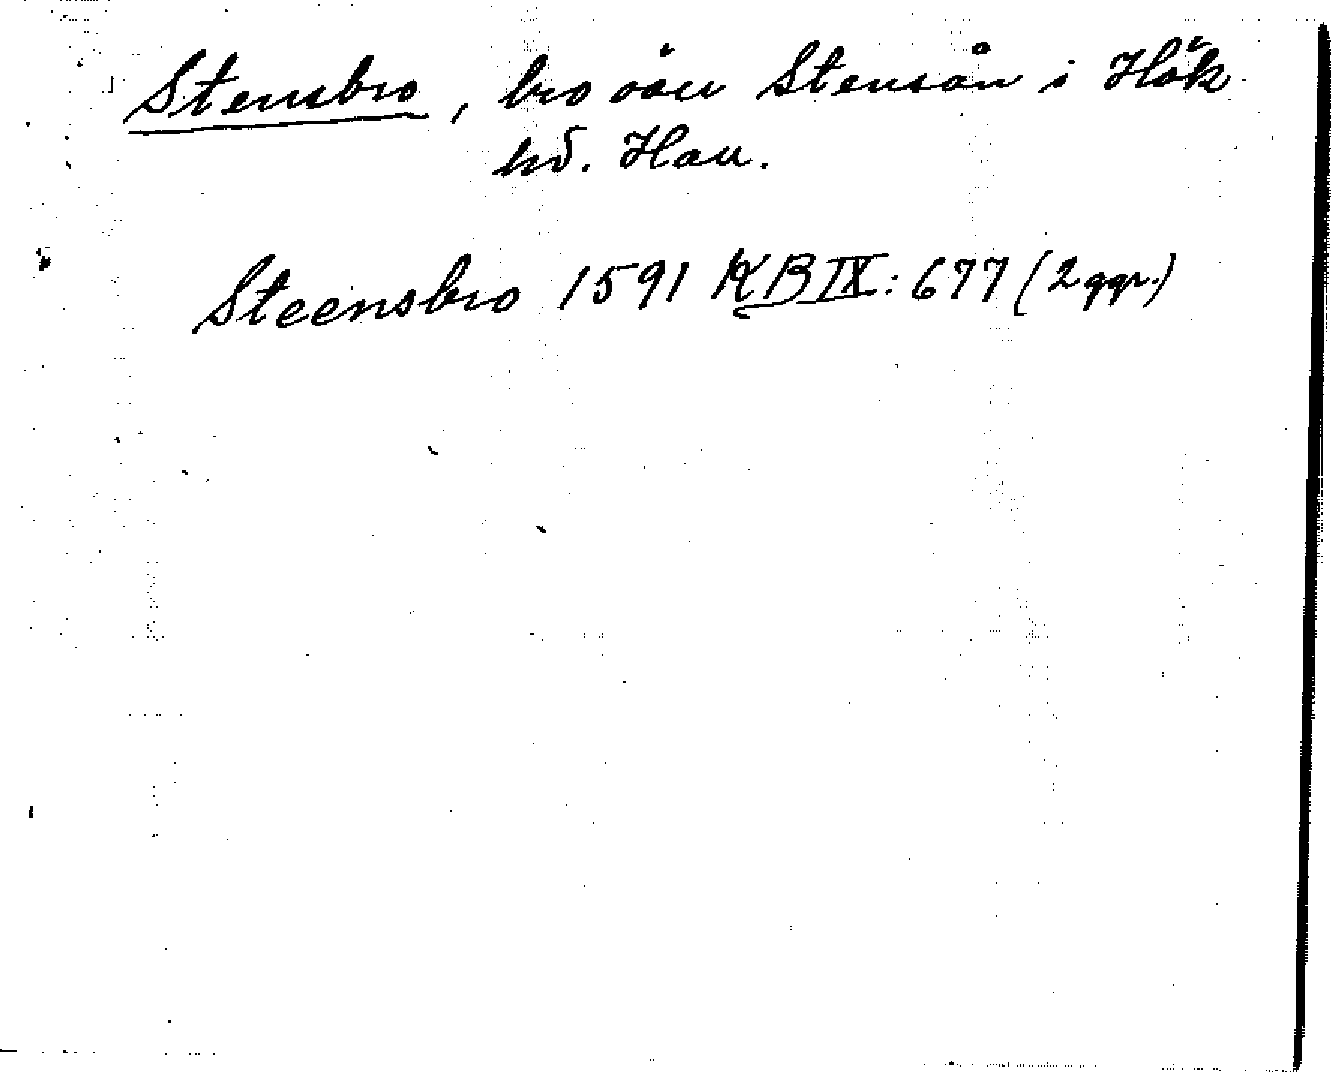 Stensbro, bro över Stensån i Hök
hd. Hall.
Steensbro 1591 KB IX: 677 (2 ggr.)